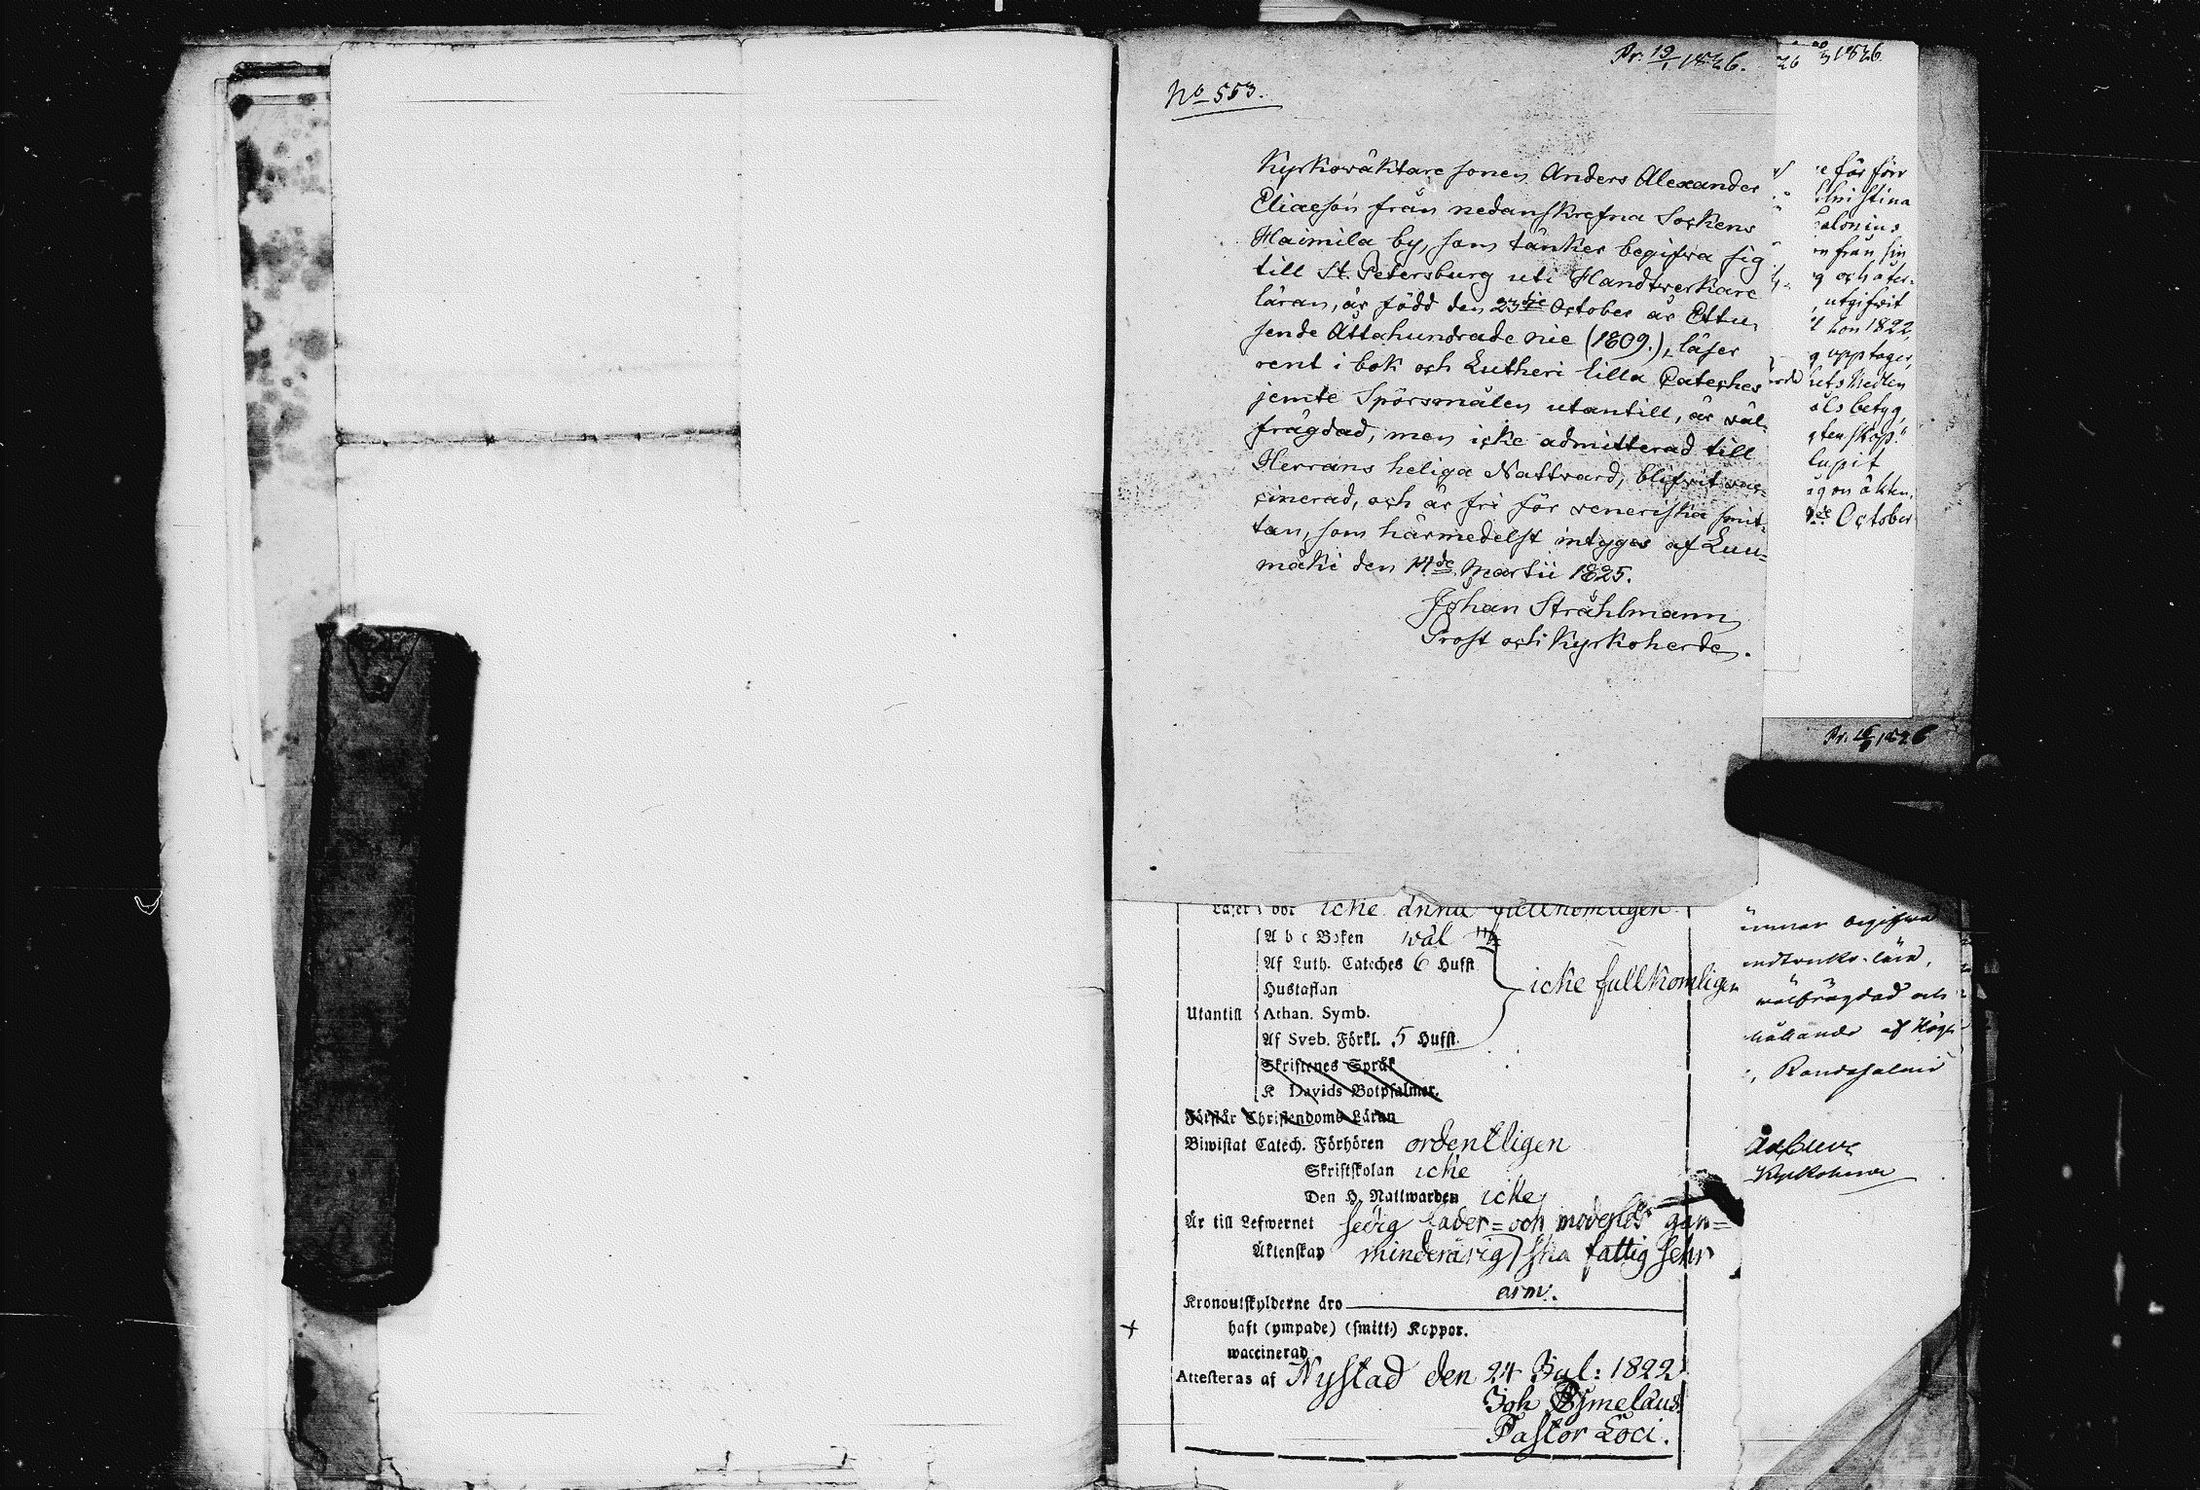 Pr. 19/1 1826.
No 553.
Kyrkowäktare sonen Anders Alexander
Eliaeson från nedanskrefna Sockens
Haimila by, som tänker begifwa sig
till St. Petersburg uti Handtwerkare
läran, är född den 23die October år Ettu,
sende Åttahundrade nie (1809.), läser
rent i bok och Lutheri lilla Cateches
jemte Spörsmålen utantill, är wäl
frägdad, men icke admitterad till
Herrans heliga Nattward, blifwit vac=
cinerad, och är fri för veneriska smit=
tan, som härmedelst intygas af Luu=
mäki den 14de Martii 1825.
Johan Stråhlmann
Prost och Kyrkoherde.
3 1826
e för förr
Christina
alonius
n från sin
g och åter=
, utgifwit
t hon 1822,
g upptager
hets Medlem
äls betyg,
gtenskap.
lupit
ågon äkten.
de October
Pr. 1826
Läser i bok icke ännu fullkomligen
A b c Boken wäl
Af Luth. Cateches 6 Hufst
Hustaflan
icke fullkomligen
Utantill Athan. Symb.
Af Sveb. Förkl. 5 Hufst.
Skriftenes Språk
K Davids Botpsalmer.
Förstår Christendoms Läran
Biwistat Catech. Förhören ordentligen
Skriftskolan icke
Den H. Nattwarden icke
Är till Lefwernet sedig fader= och moderlös gan=
Äktenskap minderårig ska fattig sehr
arm.
Kronoutskylderne äro
haft (ympade) (smitt) Koppor.
waccinerad
Attesteras af Nystad den 24 Jul: 1822
Joh
Pastor Loci.
ämnar begifwa
ndtverks-lära,
wälfrägdad och
hållande af Höge
, Randasalmi
Kyrkoherde